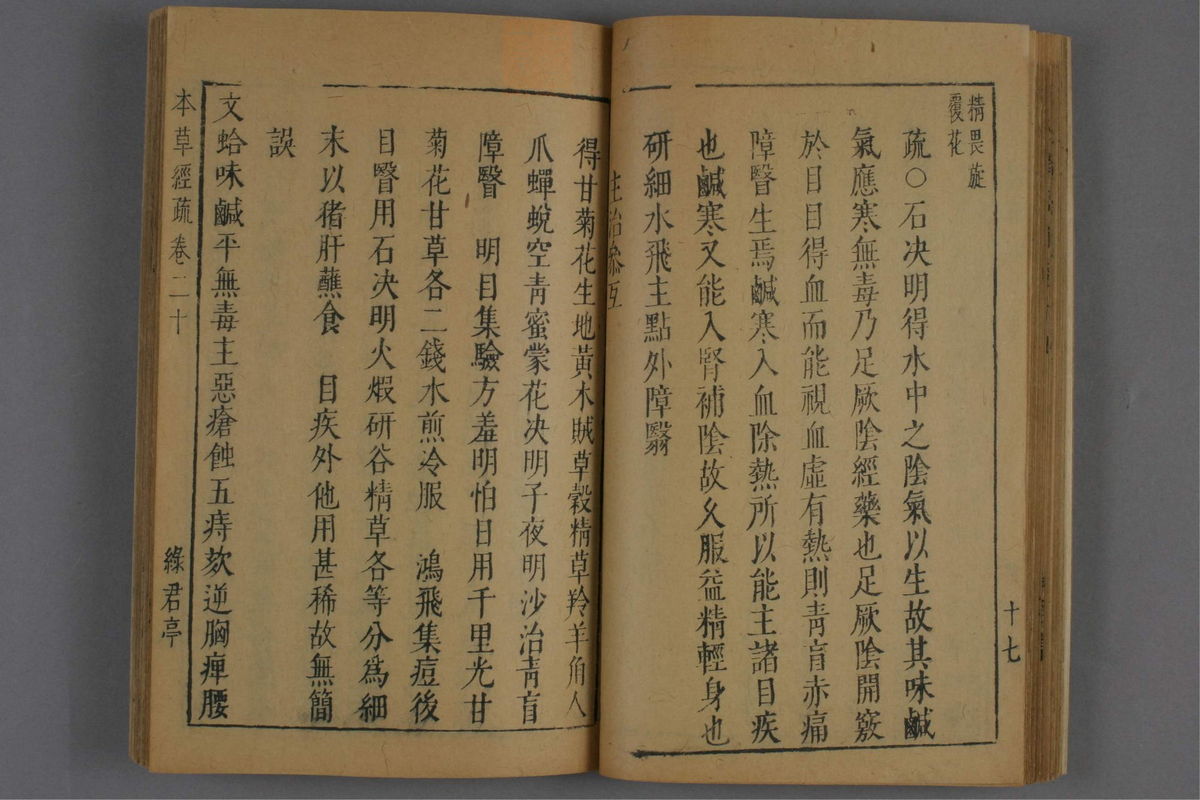 精畏旋
覆花
疏○石决明得水中之陰氣以生故其味鹹
氣應寒無毒乃足厥陰經藥也足厥陰開竅
於目目得血而能視血虛有熱則青盲赤痛
障瞖生焉鹹寒入血除熱所以能主諸目疾
也鹹寒又能入腎補陰故久服益精輕身也
研細水飛主點外障翳
十七
主治參互
得甘菊花生地黃木賊草穀精草羚羊角人
爪蟬蛻空青蜜蒙花决明子夜明沙治青盲
障瞖　明目集驗方羞明怕日用千里光甘
菊花甘草各二錢水煎冷服　鴻飛集痘後
目瞖用石决明火煆研谷精草各等分爲細
末以猪肝蘸食　目疾外他用甚稀故無簡
誤
文蛤味鹹平無毒主惡瘡蝕五痔欬逆胸痺腰
本草經疏 卷二十
綠君亭